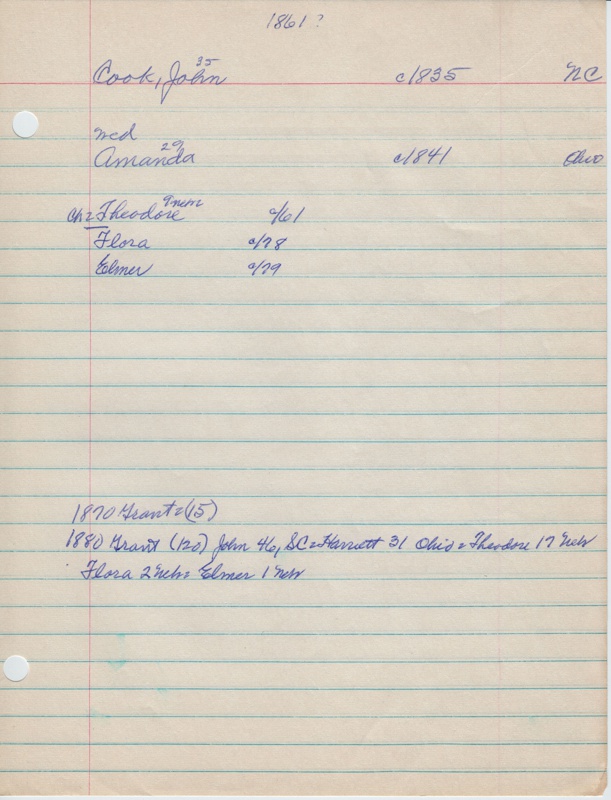 1861?
35
Cook, John c1835 NC
med
29
Amanda c1841 Ohio
9 mem
Ch = Theodore c/61
Flora c/78
Elmer c/79
1870 Grant = (15)
1880 Grant (120) John 46, SC = Harriett 31 Ohio = Theodore 17 Nebr
Flora 2 Nebr = Elmer 1 Nebr